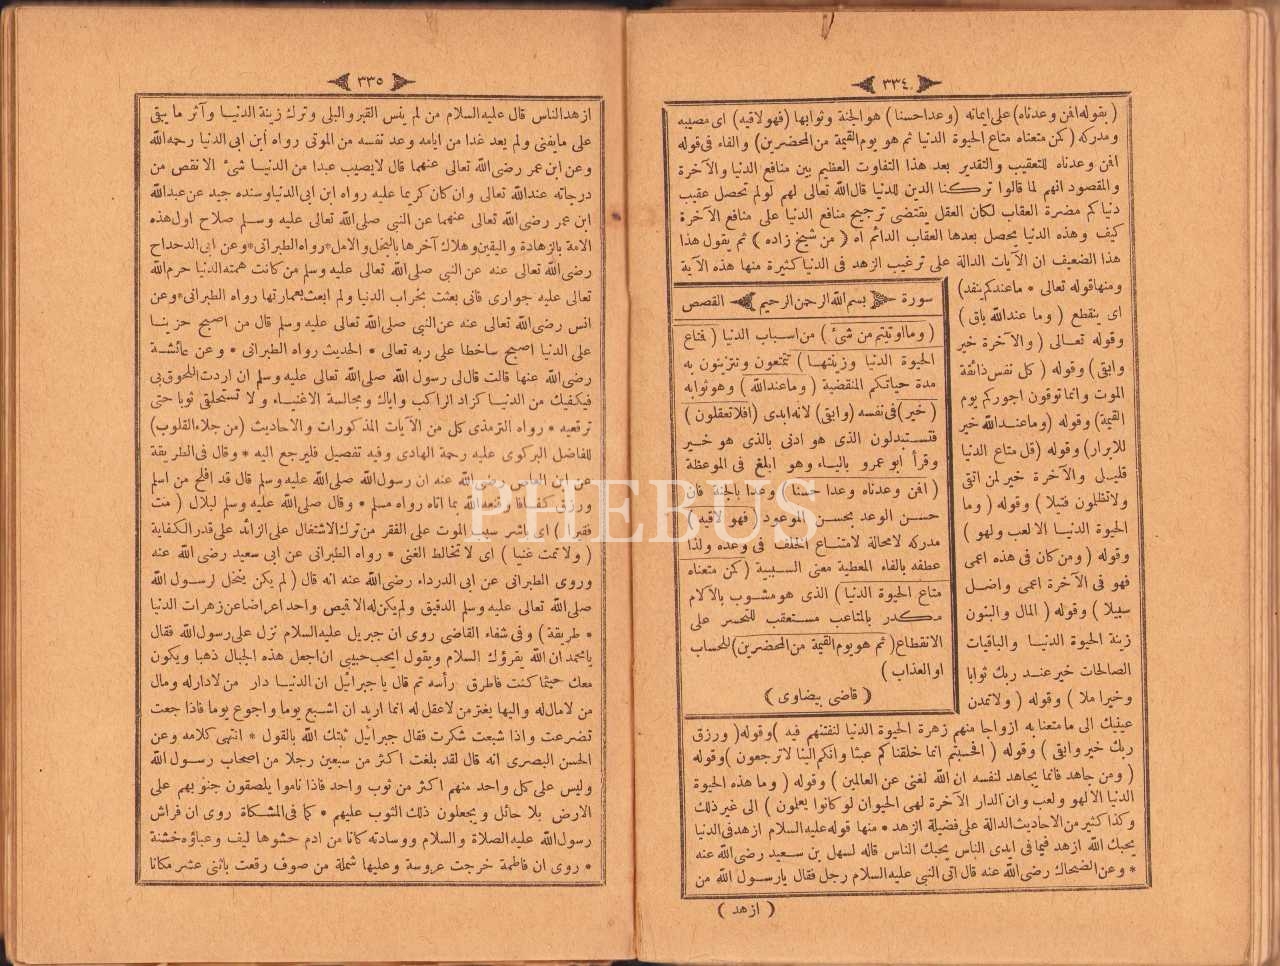 ٣٣٤
( بقوله افمن وعدناه) على ايمانه (وعدا حسنا) هو الجنة وثوابها (فهو لاقيه) اى مصيبه
ومدركه (كمن متعناه متاع الحيوة الدنيا ثم هو يوم القيمة من المحضرين) والفاء فى قوله
افمن وعدناه للتعقيب والتقدير بعد هذا التفاوت العظيم بين منافع الدنيا والآخرة
والمقصود انهم لما قالوا تركنا الدين للدنيا قال الله تعالى لهم لو لم تحصل عقيب
دنياكم مضرة العقاب لكان العقل يقتضى ترجيح منافع الدنيا على منافع الآخرة
كيف وهذه الدنيا يحصل بعدها العقاب الدائم اه ( من شيخ زاده ) ثم يقول هذا
هذا الضعيف ان الآيات الدالة على ترغيب الزهد فى الدنيا كثيرة منها هذه الآية
ومنها قوله تعالى * ما عندكم ينفد)
اى ينقطع ( وما عند الله باق )
وقوله تعالى ( والآخرة خير
وابقى ) وقوله ( كل نفس ذائقة
الموت وانما توفون اجوركم يوم
القيمة ) وقوله (وما عند الله خير
للابرار) وقوله (قل متاع الدنيا
قليل والآخرة خير لمن اتقى
ولا تظلمون فتيلا ) وقوله ( وما
الحيوة الدنيا الا لعب ولهو )
وقوله ( ومن كان فى هذه اعمى
فهو فى الآخرة اعمى واضل
سبيلا ) وقوله ( المال والبنون
زينة الحيوة الدنيا والباقيات
الصالحات خير عند ربك ثوابا
وخير املا ) وقوله ( ولا تمدن
سورة بسم الله الرحمن الرحيم القصص
( وما اوتيتم من شئ ) من اسباب الدنيا ( فمتاع
الحيوة الدنيا وزينتها ) تتمتعون وتتزينون به
مدة حياتكم المنقضية ( وما عند الله ) وهو ثوابه
( خير ) فى نفسه (وابقى) لانه ابدى (افلا تعقلون )
فتستبدلون الذى هو ادنى بالذى هو خير
وقرأ ابو عمرو بالياء وهو ابلغ فى الموعظة
( افمن وعدناه وعدا حسنا ) وعدا بالجنة فان
حسن الوعد بحسن الموعود ( فهو لاقيه )
مدركه لا محالة لامتناع الخلف فى وعده ولذا
عطفه بالفاء المعطية معنى السببية ( كمن متعناه
متاع الحيوة الدنيا ) الذى هو مشوب بالآلام
مكدر بالمتاعب مستعقب للتحسر على
الانقطاع ( ثم هو يوم القيمة من المحضرين) للحساب
او العذاب )
( قاضى بيضاوى )
عينيك الى ما متعنا به ازواجا منهم زهرة الحيوة الدنيا لنفتنهم فيه ) وقوله ( ورزق
ربك خير وابقى ) وقوله ( افحسبتم انما خلقناكم عبثا وانكم الينا لا ترجعون ) وقوله
( ومن جاهد فانما يجاهد لنفسه ان الله لغنى عن العالمين ) وقوله ( وما هذه الحيوة
الدنيا الا لهو ولعب وان الدار الآخرة لهى الحيوان لو كانوا يعلمون ) الى غير ذلك
وكذا كثير من الاحاديث الدالة على فضيلة الزهد * منها قوله عليه السلام ازهد فى الدنيا
يحبك الله ازهد فيما فى ايدى الناس يحبك الناس قاله لسهل بن سعيد رضى الله عنه
* وعن الضحاك رضى الله عنه قال اتى النبى عليه السلام رجل فقال يا رسول الله من
( ازهد )
٣٣٥
ازهد الناس قال عليه السلام من لم ينس القبر والبلى وترك زينة الدنيا وآثر ما يبقى
على ما يفنى ولم يعد غدا من ايامه وعد نفسه من الموتى رواه ابن ابى الدنيا رحمه الله
وعن ابن عمر رضى الله تعالى عنهما قال لا يصيب عبدا من الدنيا شئ الا نقص من
درجاته عند الله تعالى وان كان كريما عليه رواه ابن ابى الدنيا وسنده جيد عن عبد الله
ابن عمر رضى الله تعالى عنهما عن النبى صلى الله تعالى عليه وسلم صلاح اول هذه
الامة بالزهادة واليقين وهلاك آخرها بالبخل والامل * رواه الطبرانى * وعن ابى الدحداح
رضى الله تعالى عنه عن النبى صلى الله تعالى عليه وسلم من كانت همته الدنيا حرم الله
تعالى عليه جوارى فانى بعثت بخراب الدنيا ولم ابعث بعمارتها رواه الطبرانى * وعن
انس رضى الله تعالى عنه عن النبى صلى الله تعالى عليه وسلم قال من اصبح حزينا
على الدنيا اصبح ساخطا على ربه تعالى * الحديث رواه الطبرانى * وعن عائشة
رضى الله عنها قالت قال لى رسول الله صلى الله تعالى عليه وسلم ان اردت اللحوق بى
فيكفيك من الدنيا كزاد الراكب واياك ومجالسة الاغنياء ولا تستخلقى ثوبا حتى
ترقعيه * رواه الترمذى كل من الآيات المذكورات والاحاديث (من جلاء القلوب)
للفاضل البركوى عليه رحمة الهادى وفيه تفصيل فليرجع اليه * وقال فى الطريقة
عن ابن العاص رضى الله عنه ان رسول الله صلى الله عليه وسلم قال قد افلح من اسلم
ورزق كفافا وقنعه الله بما آتاه رواه مسلم * وقال صلى الله عليه وسلم لبلال ( مت
فقيرا ) اى باشر سبب الموت على الفقر من ترك الاشتغال على الزائد على قدر الكفاية
( ولا تمت غنيا ) اى لا تخالط الغنى * رواه الطبرانى عن ابى سعيد رضى الله عنه
وروى الطبرانى عن ابى الدرداء رضى الله عنه انه قال ( لم يكن ينخل لرسول الله
صلى الله تعالى عليه وسلم الدقيق ولم يكن له الا قميص واحد اعراضا عن زهرات الدنيا
* طريقة ) وفى شفاء القاضى روى ان جبريل عليه السلام نزل على رسول الله فقال
يا محمد ان الله يقرؤك السلام ويقول ايحب حبيبى ان اجعل هذه الجبال ذهبا ويكون
معك حيثما كنت فاطرق رأسه ثم قال يا جبرائيل ان الدنيا دار من لا دار له ومال
من لا مال له واليها يغتر من لا عقل له انما اريد ان اشبع يوما واجوع يوما فاذا جعت
تضرعت واذا شبعت شكرت فقال جبرائيل ثبتك الله بالقول * انتهى كلامه وعن
الحسن البصرى انه قال لقد بلغت اكثر من سبعين رجلا من اصحاب رسول الله
وليس على كل واحد منهم اكثر من ثوب واحد فاذا ناموا يلصقون جنوبهم على
الارض بلا حائل ويجعلون ذلك الثوب عليهم * كما فى المشكاة روى ان فراش
رسول الله عليه الصلاة والسلام ووسادته كانا من ادم حشوها ليف وعباؤه خشنة
* روى ان فاطمة خرجت عروسة وعليها شملة من صوف رقعت باثنى عشر مكانا
PHEBUS